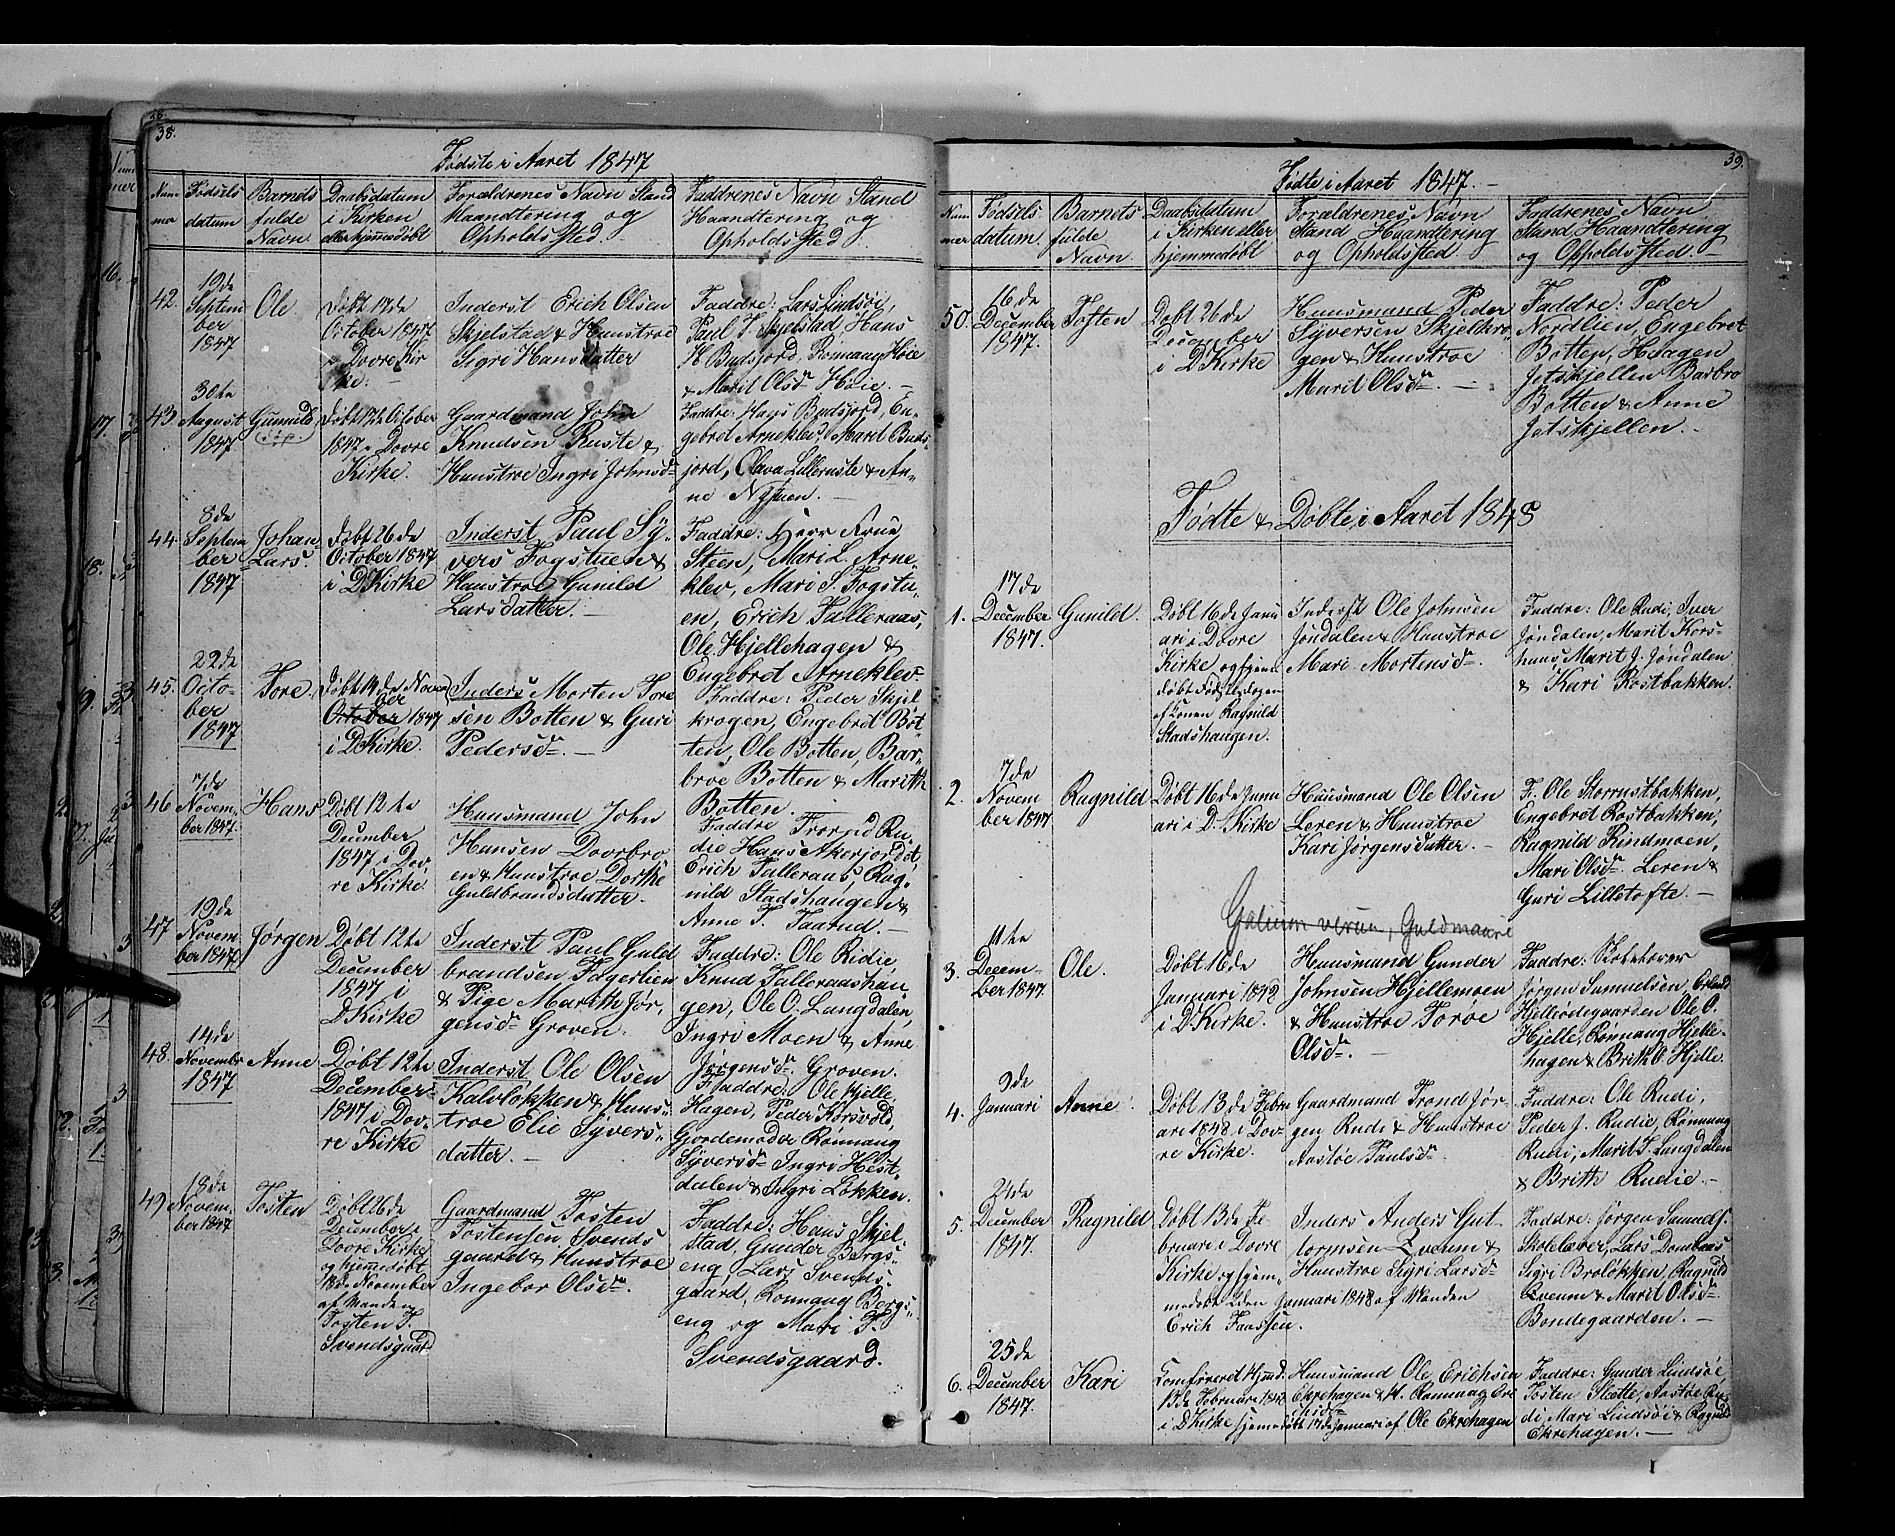 38.
Fødste i Aaret 1847
Num
mer
Fødsels
datum
Barnets
fulde
Navn
Daabsdatum
i Kirken
eller hjemmedøbt
Forældrenes Navn Stand
Haandtering og
Opholdssted.
Faddrenes Navn Stand
Haandtering og
Opholdssted
42.
19de
Septem
ber
1847
Ole.
Døbt 17de
October 1847
i Dovre Kir
ke.
Inderst Erich Olsen
Skjelstad & Hunstroe
Sigri Hansdatter
Faddre: Lars Lindsøi,
Paul T. Skjelstad, Hans
H. Budsjord, Rønnaug Høie
& Marit Olsdr Høie. –
43
30te
August
1847
Gunnild
Døbt 17de October
1847 i Dovre
Kirke.
Gaardmand John
Knudsen Ruste &
Hunstroe Ingri Johnsdr
Faddre: Hans Budsjord, En-
gebret Arneklev, Marit Buds-
jord, Olava Lilleruste & An-
ne Nystuen. –
44
8de
Septem
ber
1847
Johan
Lars.
Døbt 26de
October 1847
i D Kirke
Inderst Paul Sy-
vers Fogstuen &
Hunstroe Gunild
Larsdatter. –
Faddre: Herr Arne
Steen, Mari L. Arne-
klev, Mari S. Fogstu-
en, Erich Talleraas,
Ole Hjellehagen &
Engebret Arneklev.
45.
22de
Octo-
ber
1847
Tore
Døbt 14de Novem
ber
October 1847
i D Kirke.
Inders Morten Tore
sen Botten & Guri
Pedersdr. –
Faddre: Peder Skjel
krogen, Engebret Bot-
ten, Ole Botten, Bar-
broe Botten & Marith
Botten.
46
7de
Novem-
ber 1847.
Hans
Døbt 12te
December
1847 i Dov-
re Kirke.
Huusmand John
Hansen Dovrbro
en & Hunstroe Dorthe
Guldbrandsdatter. –
Faddre Tron Ru
die Hans Akerjordet,
Erich Talleraas, Rag-
nild Stadshaugen &
Anne T. Taarud. –
47
19de
Novem-
ber 1847.
Jørgen
Døbt 12te
December
1847 i
D Kirke
Inderst Paul Guld
brandsen Fagerlien
& Pige Marith Jør-
gensdr Groven.
Faddre: Ole Rudie
Knud Talleraashau-
gen, Ole O. Langdalen,
Ingri Moen & Anne
Jørgensdr Groven.
48.
14de
Novembr
1847
Anne
Døbt 12te
December
1847 i Dov-
re Kirke
Inderst Ole Olsen
Kalvløkken & Huus-
troe Elie Syvers-
datter. –
Faddre: Ole Hjelle
Hagen, Peder Korsvold,
Gjordemoder Rønnaug
Syversdr Ingri Hest-
dalen & Ingri Løkken.
49
18de
Novem-
ber 1847
Tosten
Døbt 26de
December i
Dovre Kirke
og hjemmedøbt
18de November
af Manden
Tosten T.
Svendsgaard
Gaardmand Tosten
Tostensen Svends
gaard & Hunstroe
Ingebor Olsdr.
Faddre: Hans Skjel-
stad, Gunder Bergs-
eng, Lars Svends-
gaard, Rønnaug Bergs-
eng og Mari T.
Svendsgaard.
39.
Fødte i Aaret 1847. –
Num
mer
Fødsels
datum.
Barnets
fulde
Navn.
Daabsdatum
i Kirken eller
hjemmedøbt
Forældrenes Navn
Stand Haandtering
og Opholdssted.
Faddrenes Navn
Stand Haandtering
og Opholdssted. –
50.
16de
December
1847.
Tosten
Døbt 26de
December
i D Kirke
Huusmand Peder
Syversen Skjelkro-
gen & Hunstroe
Marit Olsdr. –
Faddre: Peder
Nordlien, Engebret
Botten, Haagen
Jetskjellen Barbro
Botten & Anne
Jetskjellen. –
Fødte & Døbte i Aaret 1848
1.
17de
December
1847.
Gunild.
Døbt 16de Janu
ari i Dovre
Kirke og hjem
døbt Fødselsdagen
af Konen Ragnild
Stadshaugen.
Inderst Ole Johnsen
Jøndalen & Hunstroe
Mari Mortensdr.
Faddre: Ole Rudi, Iver
Jøndalen, Marit Kors-
huus, Marit J. Jøndalen
& Kari Rostbakken.
2.
7de
Novem
ber 1847
Ragnild
Døbt 16de Janu
ari i D. Kirke
Huusmand Ole Olsen
Leren & Hunstroe
Kari Jørgensdatter. –
F. Ole Storrustbakken,
Engebret Rostbakken,
Ragnild Rindmoen,
Mari Olsdr. Leren &
Guri Lilletofte. –
Galium verum, Guldmaare
3.
11te
Decem-
ber 1847.
Ole.
Døbt 16de
Januari 1848
i D. Kirke.
Huusmand Gunder
Johnsen Hjellemoen
& Hunstroe Toroe
Olsdr. –
Faddre:
Jørgen Samuelsen, Erland
Hjelleødegaarden Ole O.
Hjelle, Rønnaug Hjelle-
hagen & Brith O. Hjelle.
4.
9de
Januari
Anne.
Døbt 13de Febru
ari 1848 i Dov-
re Kirke.
Gaardmand Trond Jør-
gen Rudi & Hunstroe
Aastoe Paulsdr.
Faddre: Ole Rudi,
Peder J. Rudie, Rønnaug
Rudi, Marit T. Langdalen
& Brith Rudie. –
5.
24de
December
1847.
Ragnild
Døbt 13de Fe-
bruari i Dovre
Kirke og hjem-
medøbt 2den Januari 1848 af Manden
Erich Faassen.
Inders Anders Gut-
tormsen Qveum &
Hunstroe Sigri Larsdr
Faddre: Jørgen Samuels.
Skolelærer, Lars Dombaas
Sigri Broløkken, Ragnild
Qveum & Marit Olsdr.
Bondegaarden. –
6.
25de
December
1847.
Kari
Comfirered Hjemd.
13de Februari 1848
i D Kirke hjemedøbt 17de Januari af Ole Ekrehagen
Huusmand Ole Erichsen
Ekrehagen & H. Rønnaug Eri
chsdr
Faddre: Gunder Lindsøe,
Tosten Slette, Aastoe Ru-
di, Mari Lindsøi & Ragnild
Ekrehagen. –